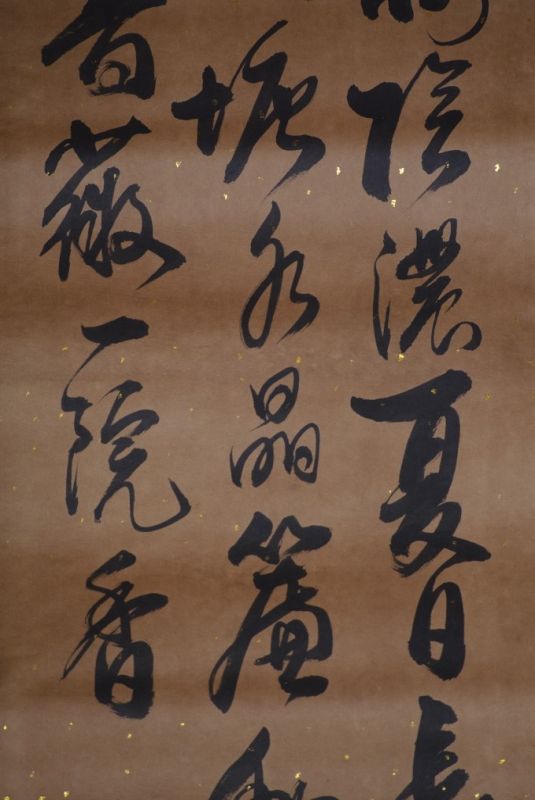 陰濃夏日長
塘水晶簾
薔薇一院香